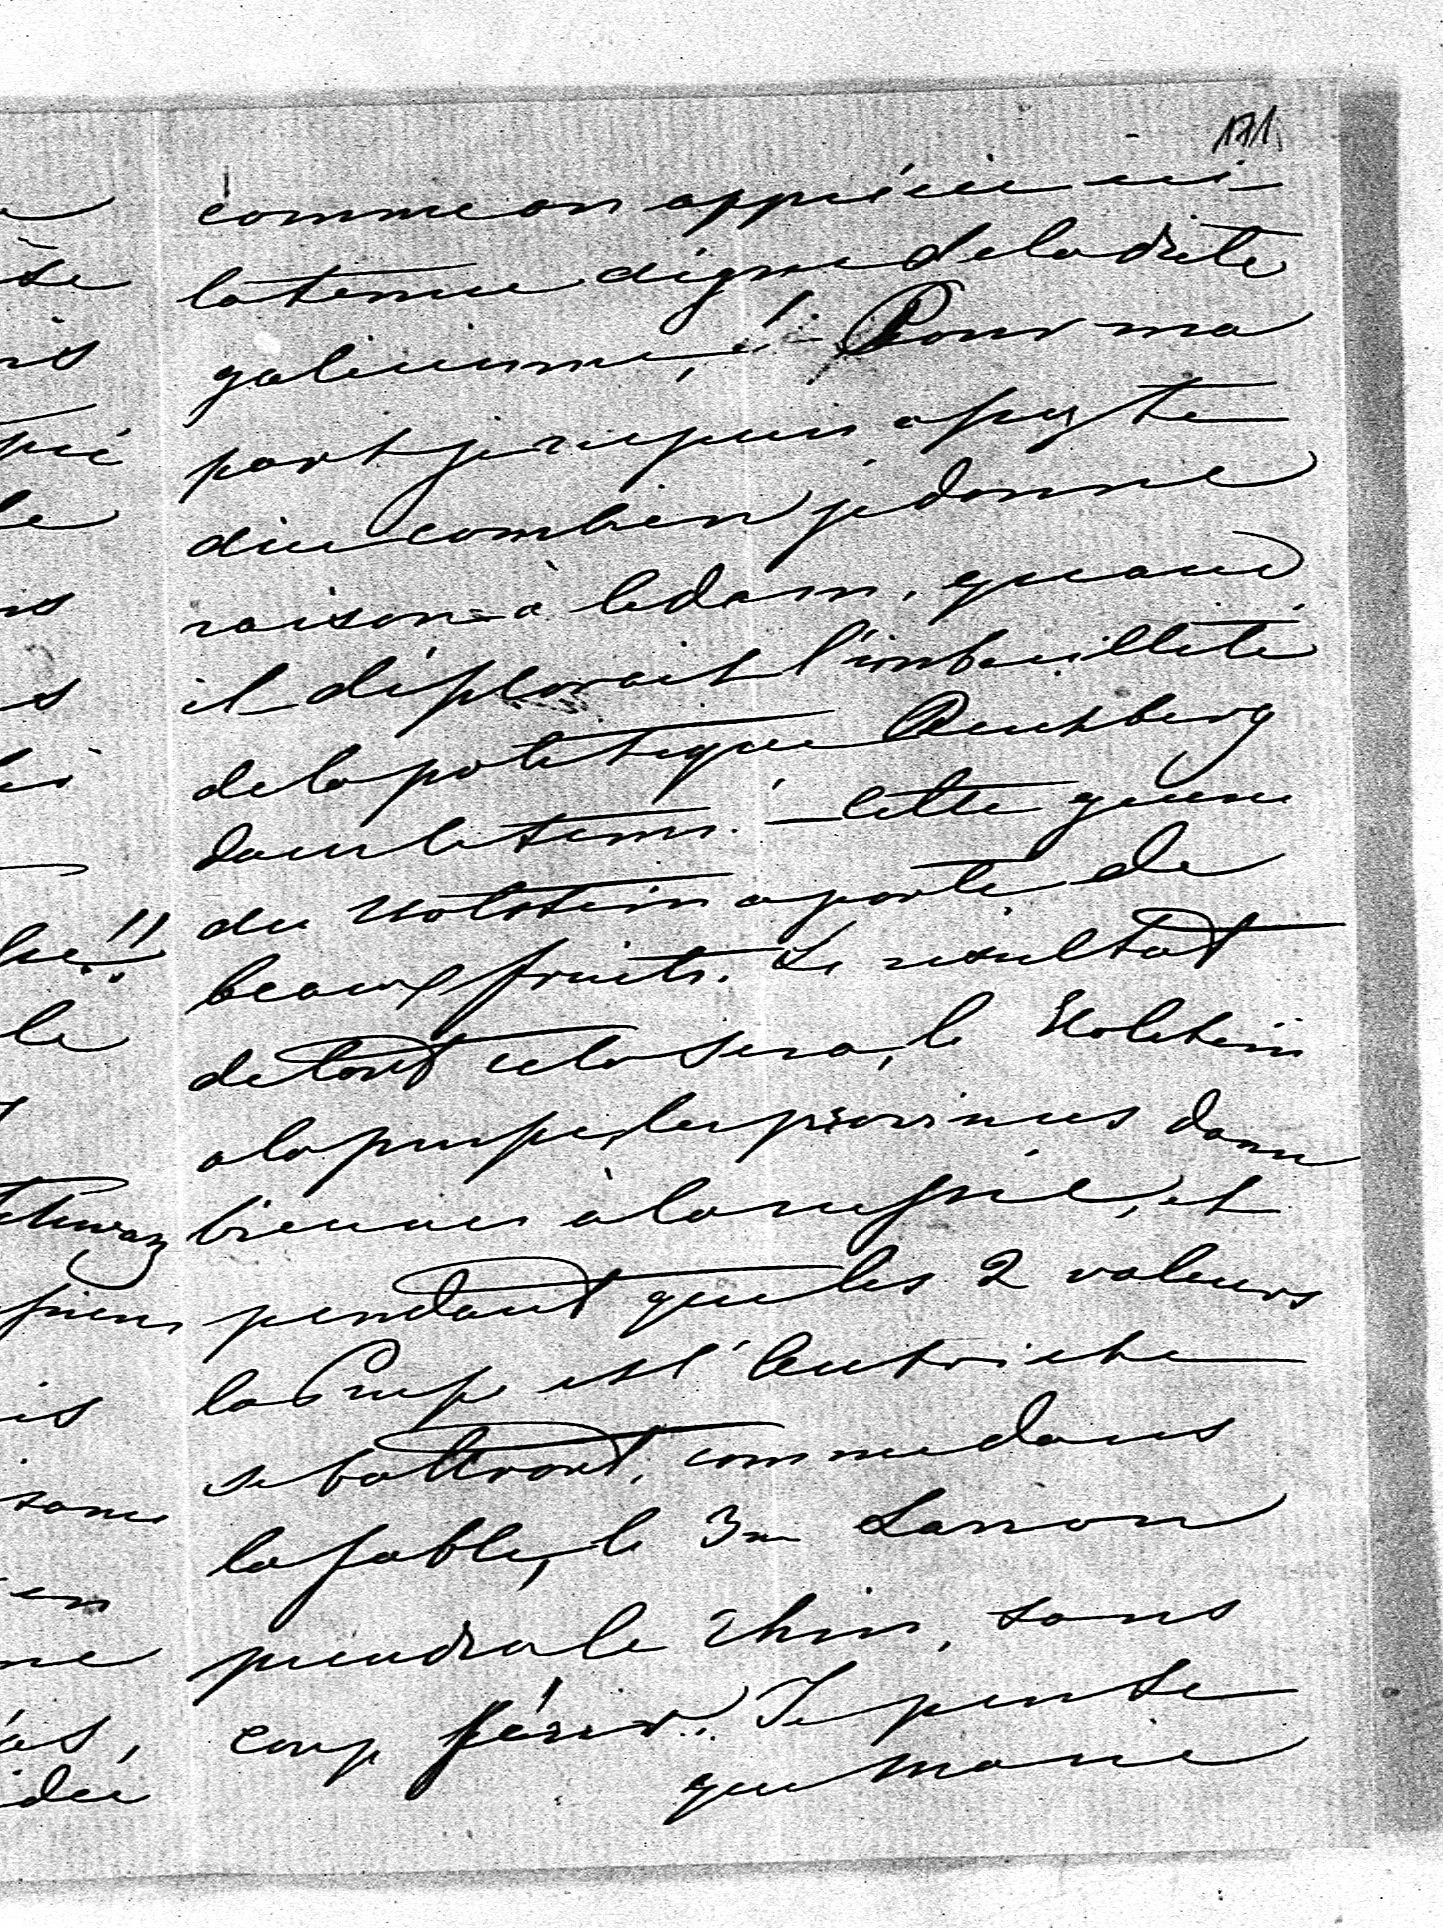 171
comme on apprécie ici
la tenue digne de la diète
galicienne,! Pour ma
part je ne puis assez te
dire combien je donne
raison à Adam, quand
il déplorait l'imbecillité
de la politique Rechberg
dans le tems. — Cette guerre
du Holstein a porté de
beaux fruits. Le résultat
de tout cela sera, le Holstein
a la prusse, les provinces danu
biennes à la russie, et
pendant que les 2 voleurs
la Prusse et l'Autriche
se battront, comme dans
la fable, le 3me Larron
prendra le Rhin, sans
coup férir. Je pense
que Marie